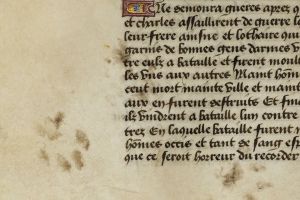 Ne demoura gueres apres q
et charles assaillirent de guerre l
leur frere aisne et lothaire qui
garnis de bonnes gens darmes v
tre eulx a bataille et furent moul
les vns aux autres Maint hom
cent mort mainte ville et maint
aux en furent destruits Et fina
ilz vindrent a bataille lun contre
trez En laquelle bataille furent m
hommes occis et tant de sang esp
que ce seroit horreur du recorder